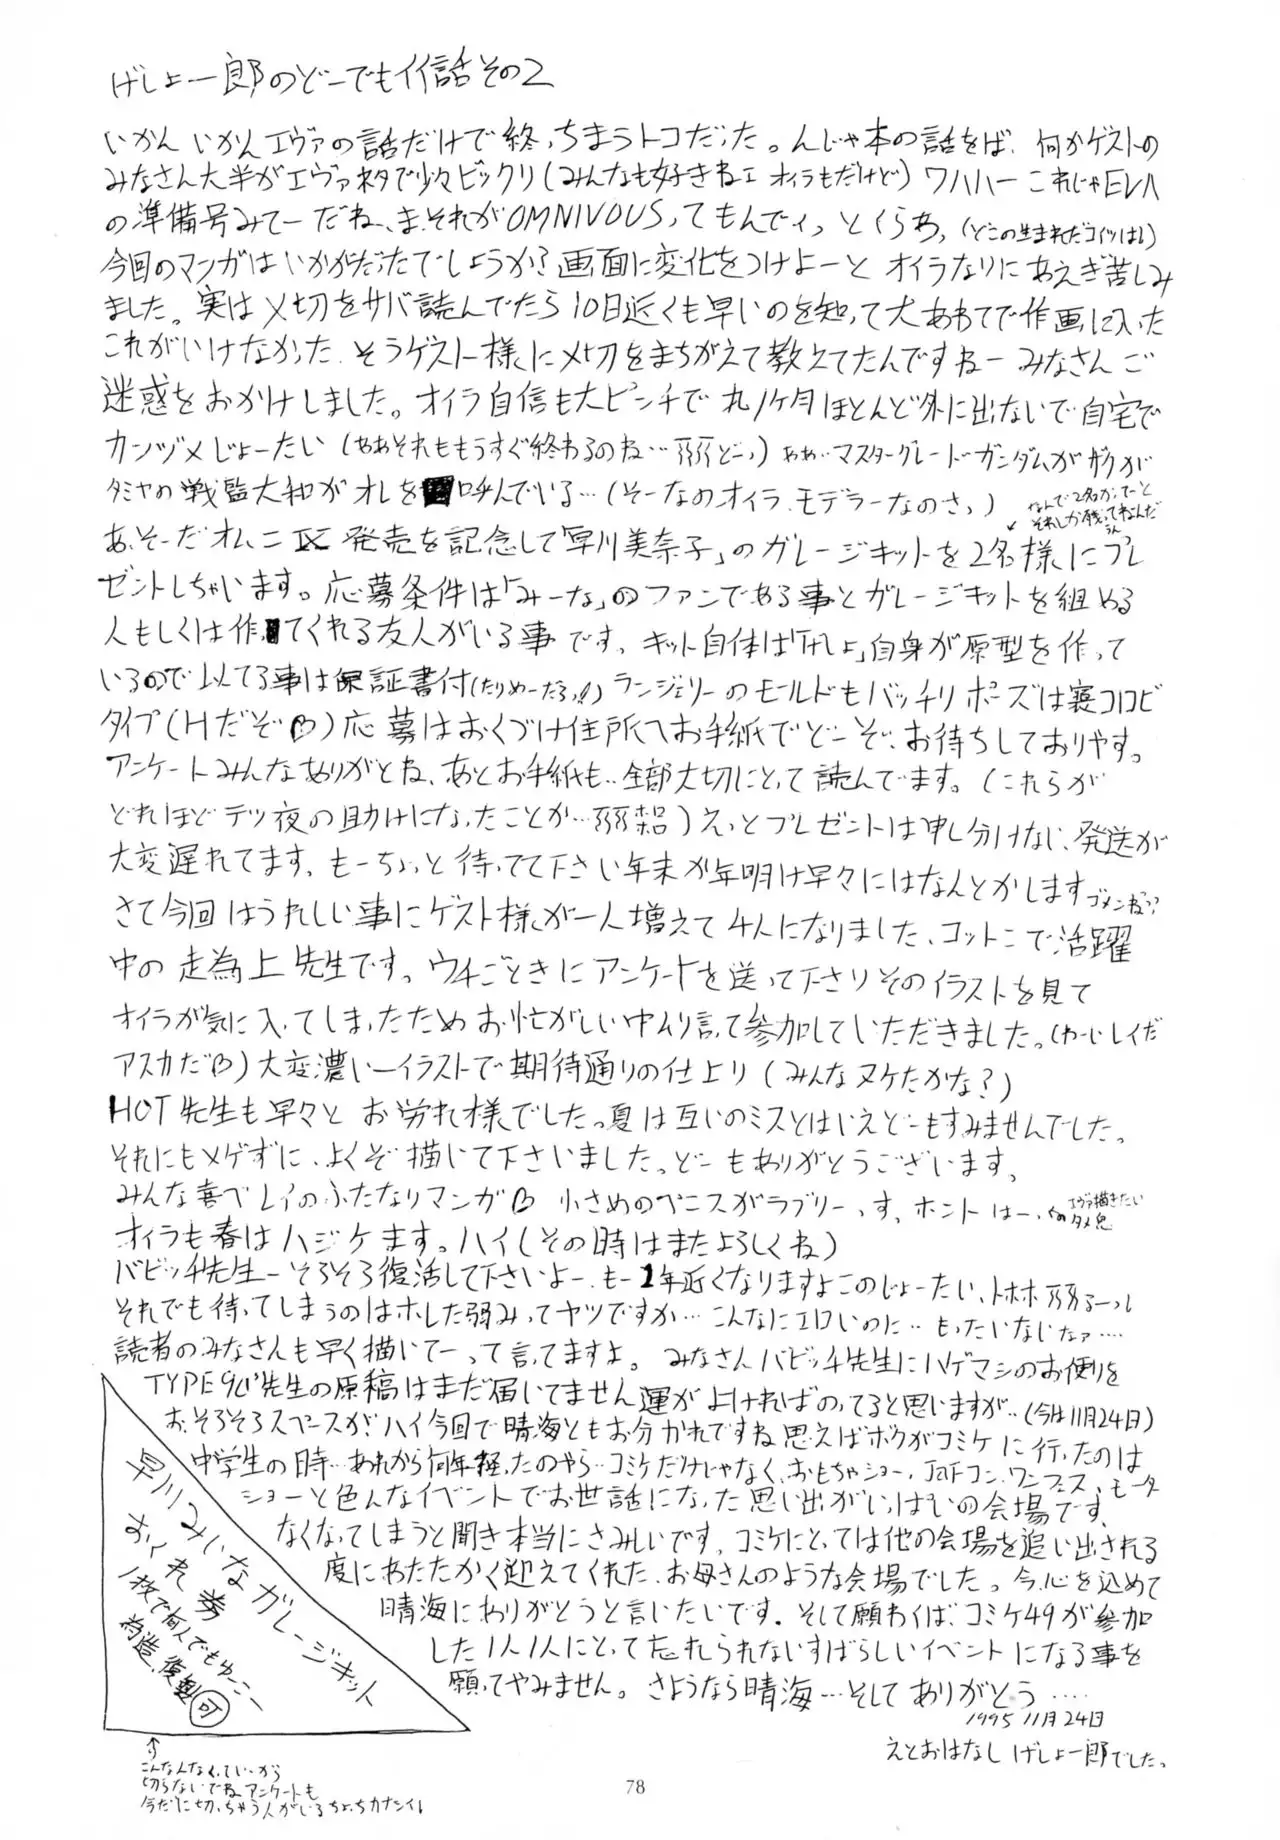 げしょ一郎のどーでもイイ話その2
いかん いかんエヴァの話だけで終っちまうトコだった。んじゃ本の話をば、何かゲストの
みなさん大半がエヴァネタで少々ビックリ(みんなも好きねェ オイラもだけど)ワハハー これじゃEVA
の準備号みてーだね、ま、それがOMNIVOUSってもんでィっ とくらぁ、(どこの生まれだコイツは!)
今回のマンガはいかがだったでしょうか? 画面に変化をつけよーと オイラなりにあえぎ苦しみ
ました。実は〆切をサバ読んでたら10日近くも早いのを知って大あわてで作画に入った
これがいけなかった、そうゲスト様に〆切をまちがえて教えてたんですねー みなさんご
迷惑をおかけしました。オイラ自信も大ピンチで丸1ヶ月ほとんど外に出ないで自宅で
カンヅメじょーたい(ああそれももうすぐ終わるのね…)ああ…マスターグレードガンダムが
タミヤの戦艦大和がオレを呼んでいる…(そーなのオイラ、モデラーなのさっ)
なんで2名かってーと
それしか残ってねんだ
うん
あ、そーだオムニⅨ発売を記念して「早川美奈子」のガレージキットを2名様にプレ
ゼントしちゃいます。応募条件は「みーな」のファンである事とガレージキットを組める
人もしくは作ってくれる友人がいる事です、キット自体は「げしょ」自身が原型を作って
いるので似てる事は保証書付(たりめーだろっ!)ランジェリーのモールドもバッチリ ポーズは寝コロビ
タイプ(Hだぞ♡)応募はおくづけ住所へお手紙でどーぞ、お待ちしておりやす。
アンケートみんなありがとね、あとお手紙も‥全部大切にとって読んでます。(これらが
どれほどテツ夜の助けになったことか…)えっとプレゼントは申し分けない、発送が
大変遅れてます、もーちょっと待ってて下さい年末か年明け早々にはなんとかします ゴメンね??
さて今回はうれしい事にゲスト様が一人増えて4人になりました、コットンコミックで活躍
中の 走為上先生です。ウチごときにアンケートを送って下さりそのイラストを見て
オイラが気に入ってしまったためお忙がしい中ムリ言って参加していただきました。(わーいレイだ
アスカだ♡)大変濃いーイラストで期待通りの仕上り(みんなヌケたかな?)
HOT先生も早々と お労れ様でした。夏は互いのミスとはいえどーもすみませんでした。
それにもメゲずに、よくぞ描いて下さいました。どーもありがとうございます。
みんな喜べレイのふたなりマンガ♡ 小さめのペニスがラブリーっす、ホントはー、
エヴァ描きたい
オイラも春はハジケます。ハイ(その時はまたよろしくね)
バビッチ先生ーそろそろ復活して下さいよー、もー1年近くなりますよこのじょーたい、トホホ
それでも待ってしまうのはホレた弱みってヤツですか…こんなにエロいのに‥もったいないなァ‥‥
読者のみなさんも早く描いてーって言ってますよ。みなさんバビッチ先生にハゲマシのお便りを
TYPE90先生の原稿はまだ届いてません運がよければのってると思いますが‥(今は11月24日)
お、そろそろスペースが!ハイ今回で晴海ともお分かれですね思えばボクがコミケに行ったのは
中学生の時…あれから何年経ったのやら‥コミケだけじゃなく、おもちゃショー、JAFコン、ワンフェス、モーター
ショーと色んなイベントでお世話になった思い出がいっぱいの会場です、
なくなってしまうと聞き本当にさみしいです、コミケにとっては他の会場を追い出される
度にあたたかく迎えてくれた、お母さんのような会場でした。今心を込めて
晴海にありがとうと言いたいです。そして願わくば、コミケ49が参加
した1人1人にとって忘れられないすばらしいイベントになる事を
願ってやみません。さようなら晴海…そしてありがとう‥‥
1995 11月24日
えとおはなし げしょ一郎でした。
早川みいなガレージキット
おくれ券
1枚で何人でもゆーこー
偽造、複製可
こんなんなくっていいから
切らないでね アンケートも
今だに切っちゃう人がいる ちょっちカナシイ!
78